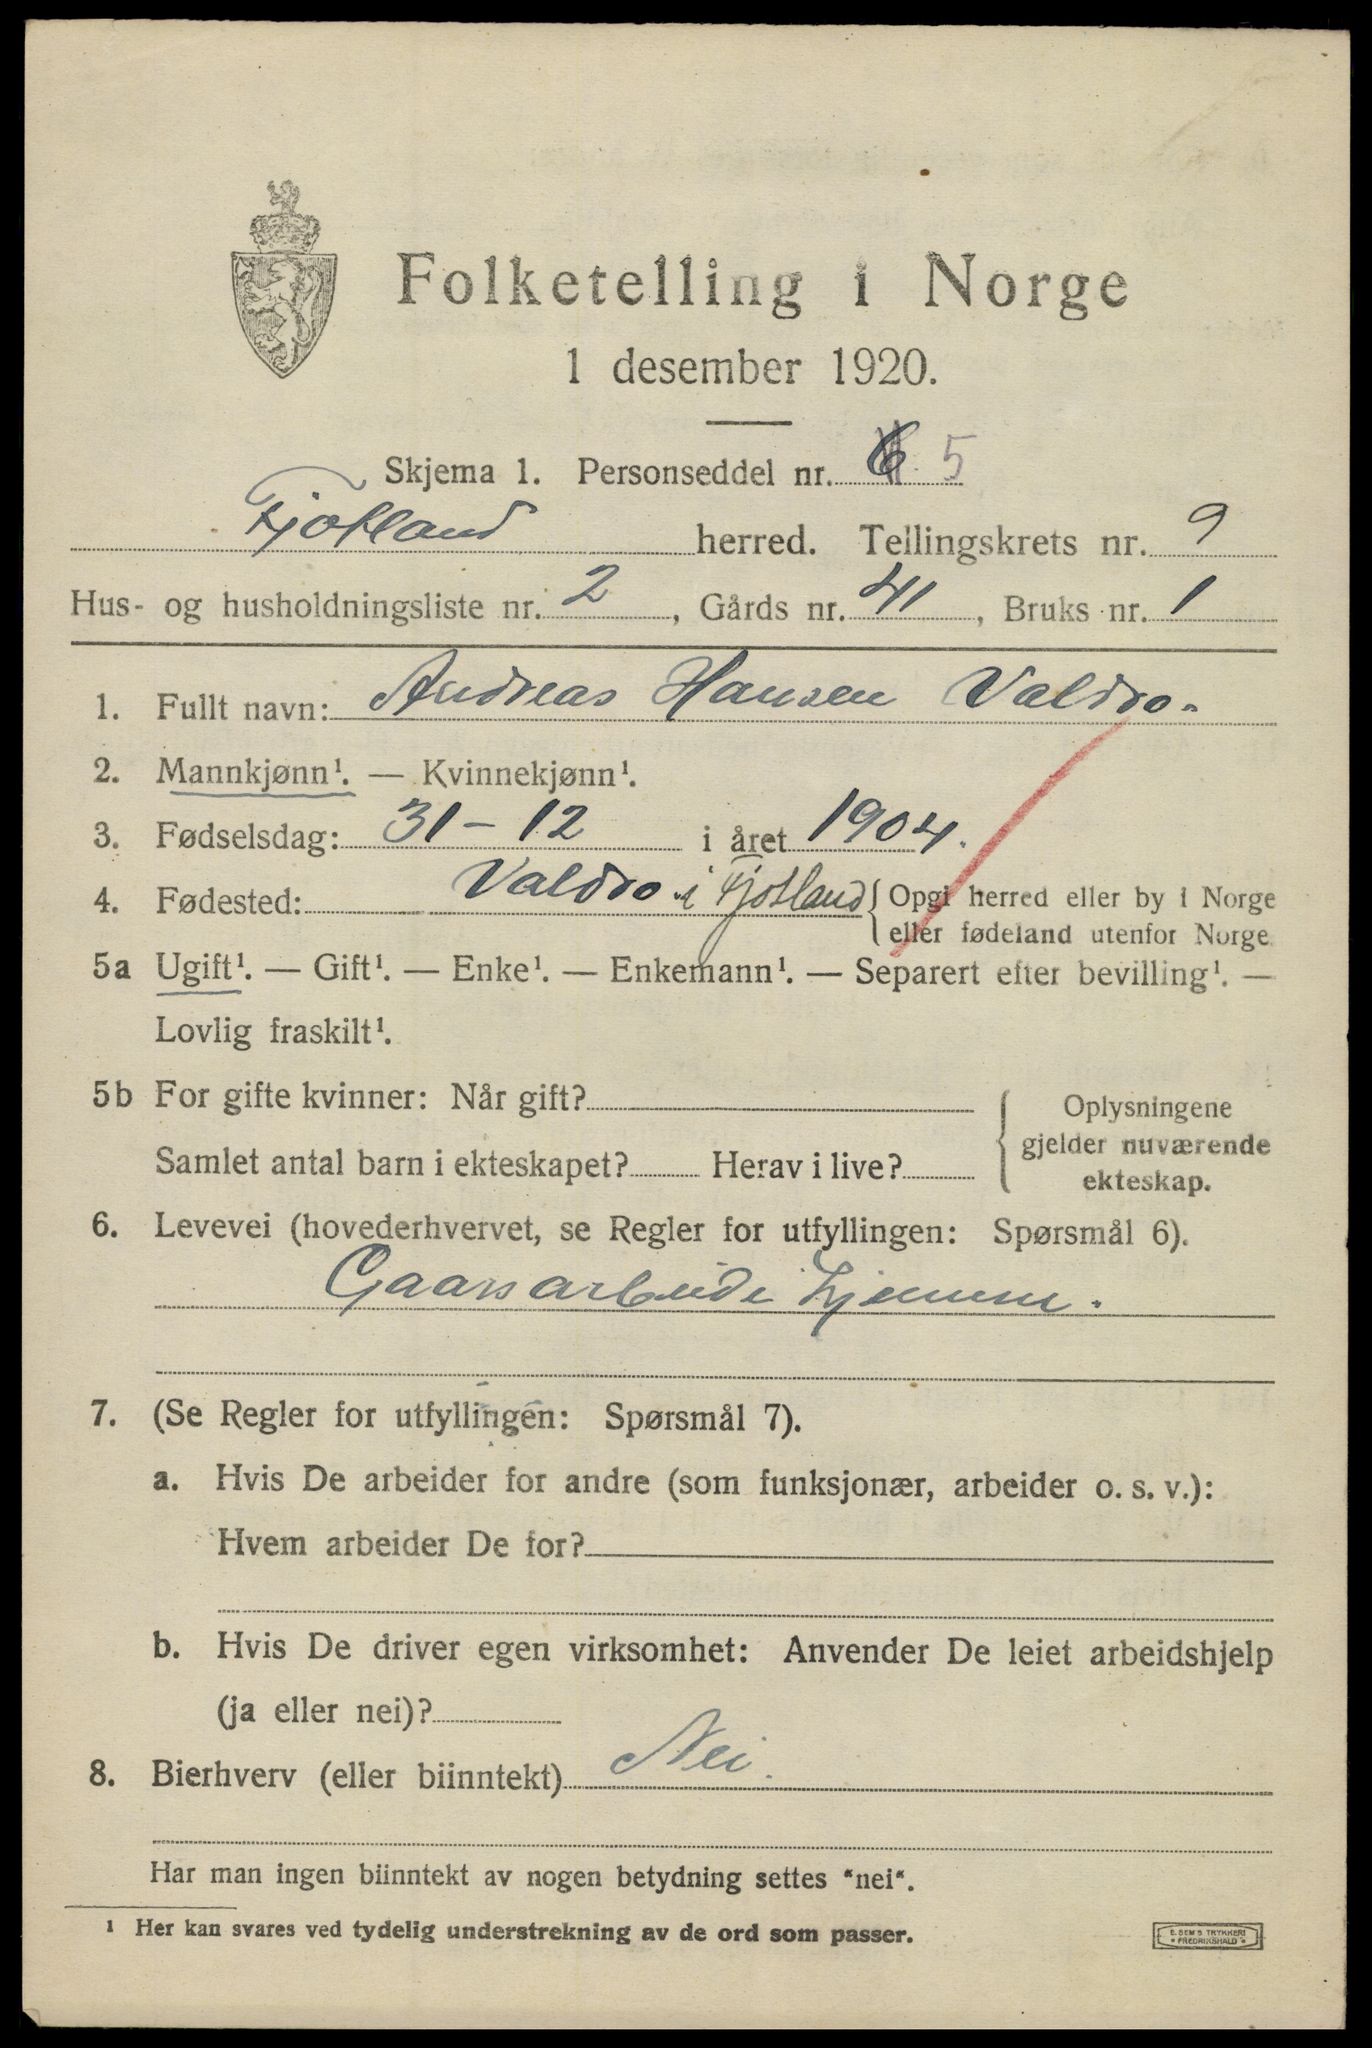 Folketelling i Norge
1 desember 1920.
Skjema 1. Personseddel nr. 5
Fjotland herred. Tellingskrets nr. 9
Hus- og husholdningsliste nr. 2, Gårds nr. 41, Bruks nr. 1
1. Fullt navn: Andreas Hansen Valdro.
2. Mannkjønn¹. — Kvinnekjønn¹.
3. Fødselsdag: 31-12 i året 1904.
4. Fødested: Valdro i Fjotland { Opgi herred eller by i Norge
eller fødeland utenfor Norge.
5a Ugift¹. — Gift¹. — Enke¹. — Enkemann¹. — Separert efter bevilling¹. —
Lovlig fraskilt¹.
5b For gifte kvinner: Når gift?
Samlet antal barn i ekteskapet? Herav i live?
{ Oplysningene
gjelder nuværende
ekteskap.
6. Levevei (hovederhvervet, se Regler for utfyllingen: Spørsmål 6).
Gaarsarbeide hjemme.
7. (Se Regler for utfyllingen: Spørsmål 7).
a. Hvis De arbeider for andre (som funksjonær, arbeider o. s. v.):
Hvem arbeider De for?
b. Hvis De driver egen virksomhet: Anvender De leiet arbeidshjelp
(ja eller nei)?
8. Bierhverv (eller biinntekt) Nei.
Har man ingen biinntekt av nogen betydning settes "nei".
¹ Her kan svares ved tydelig understrekning av de ord som passer.
E. SEM'S TRYKKERI
* FREDRIKSHALD *